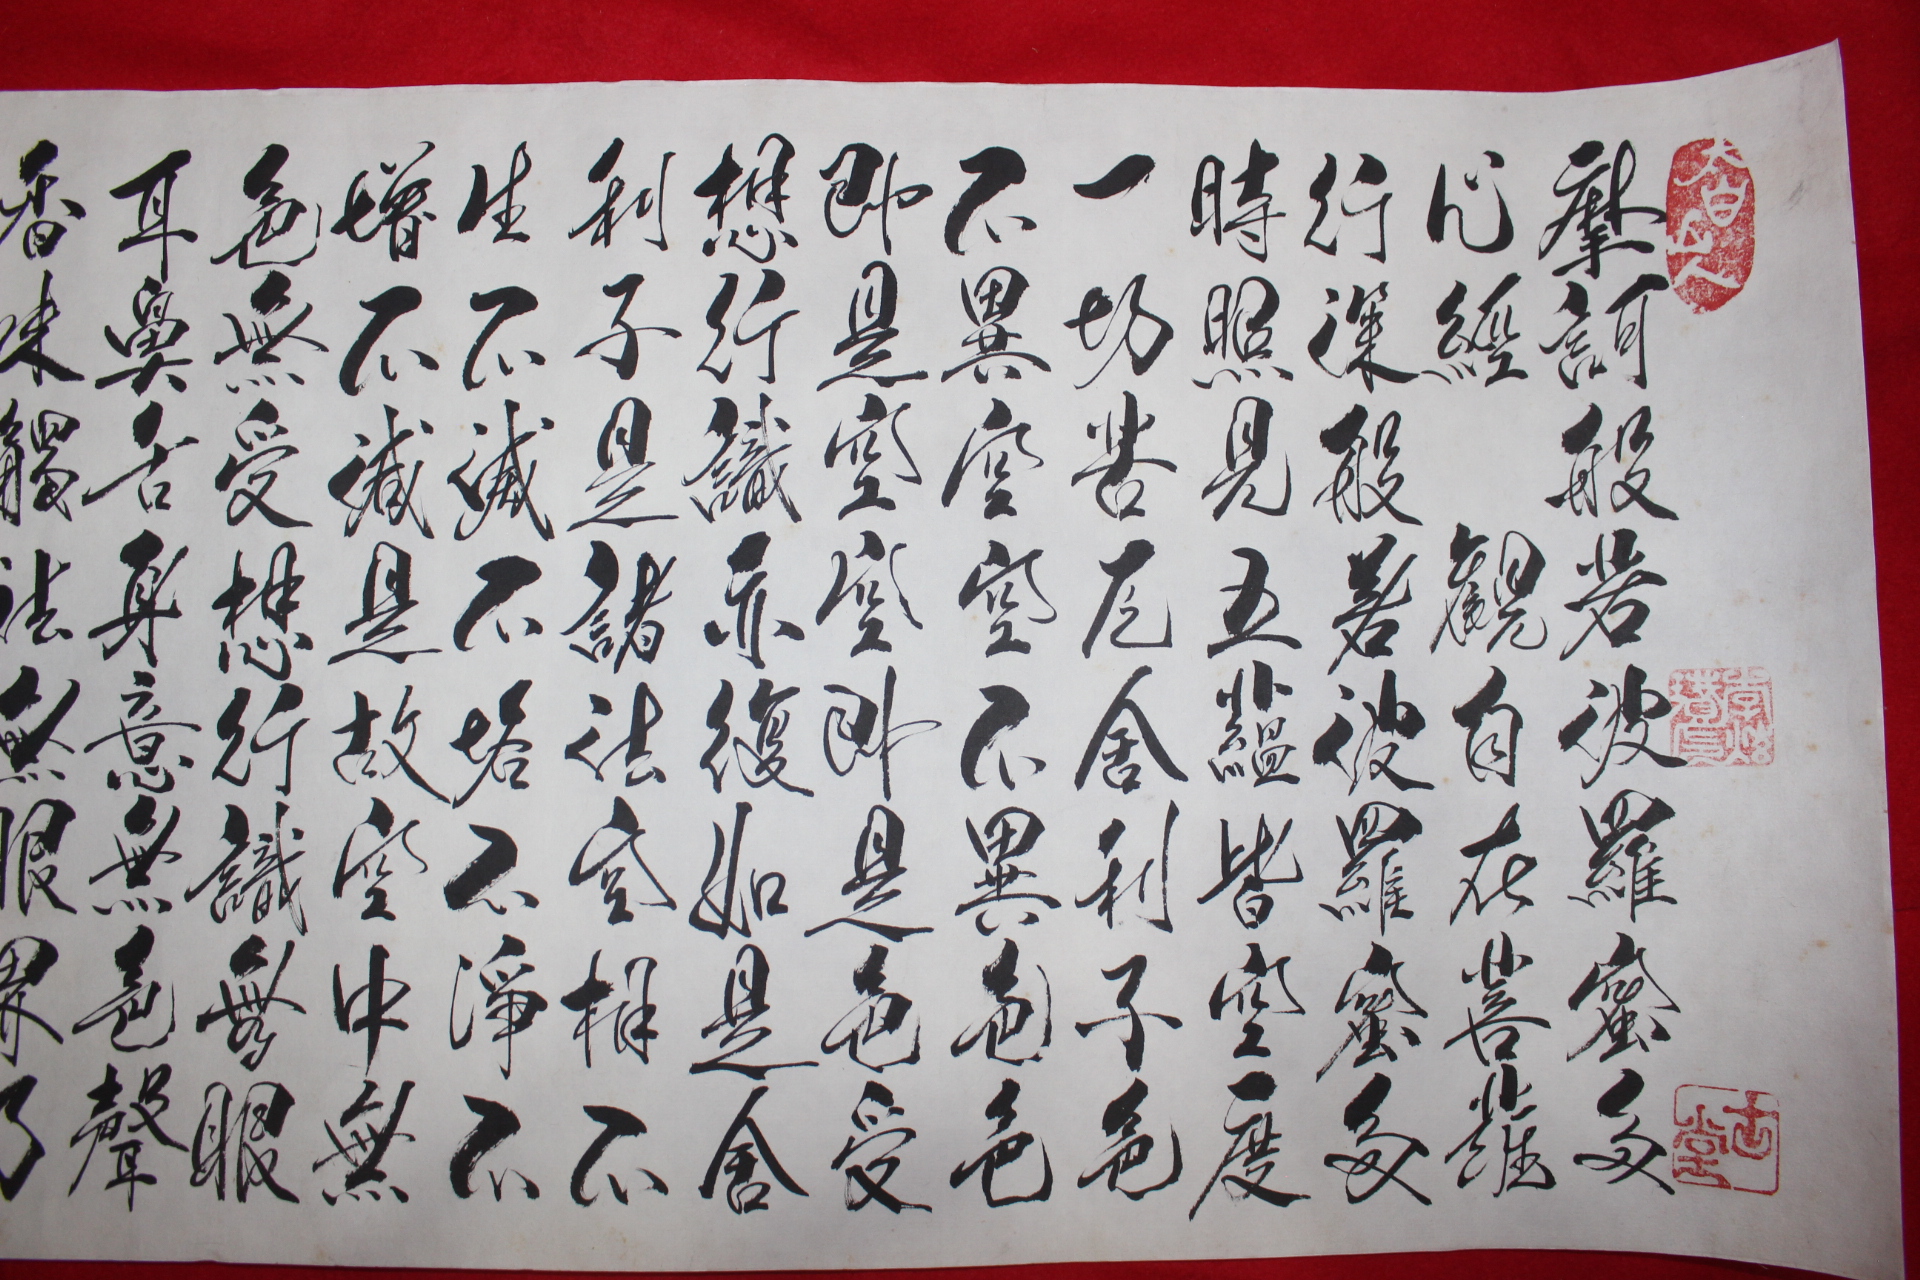 太白山人
摩訶般若波羅蜜多
心經 觀自在菩薩
行深般若波羅蜜多
時照見五蘊皆空度
一切苦厄舍利子色
不異空空不異色色
即是空空即是色受
想行識亦復如是舍
利子是諸法空相不
生不滅不垢不淨不
增不減是故空中無
色無受想行識無眼
耳鼻舌身意無色聲
香味觸法無眼界乃